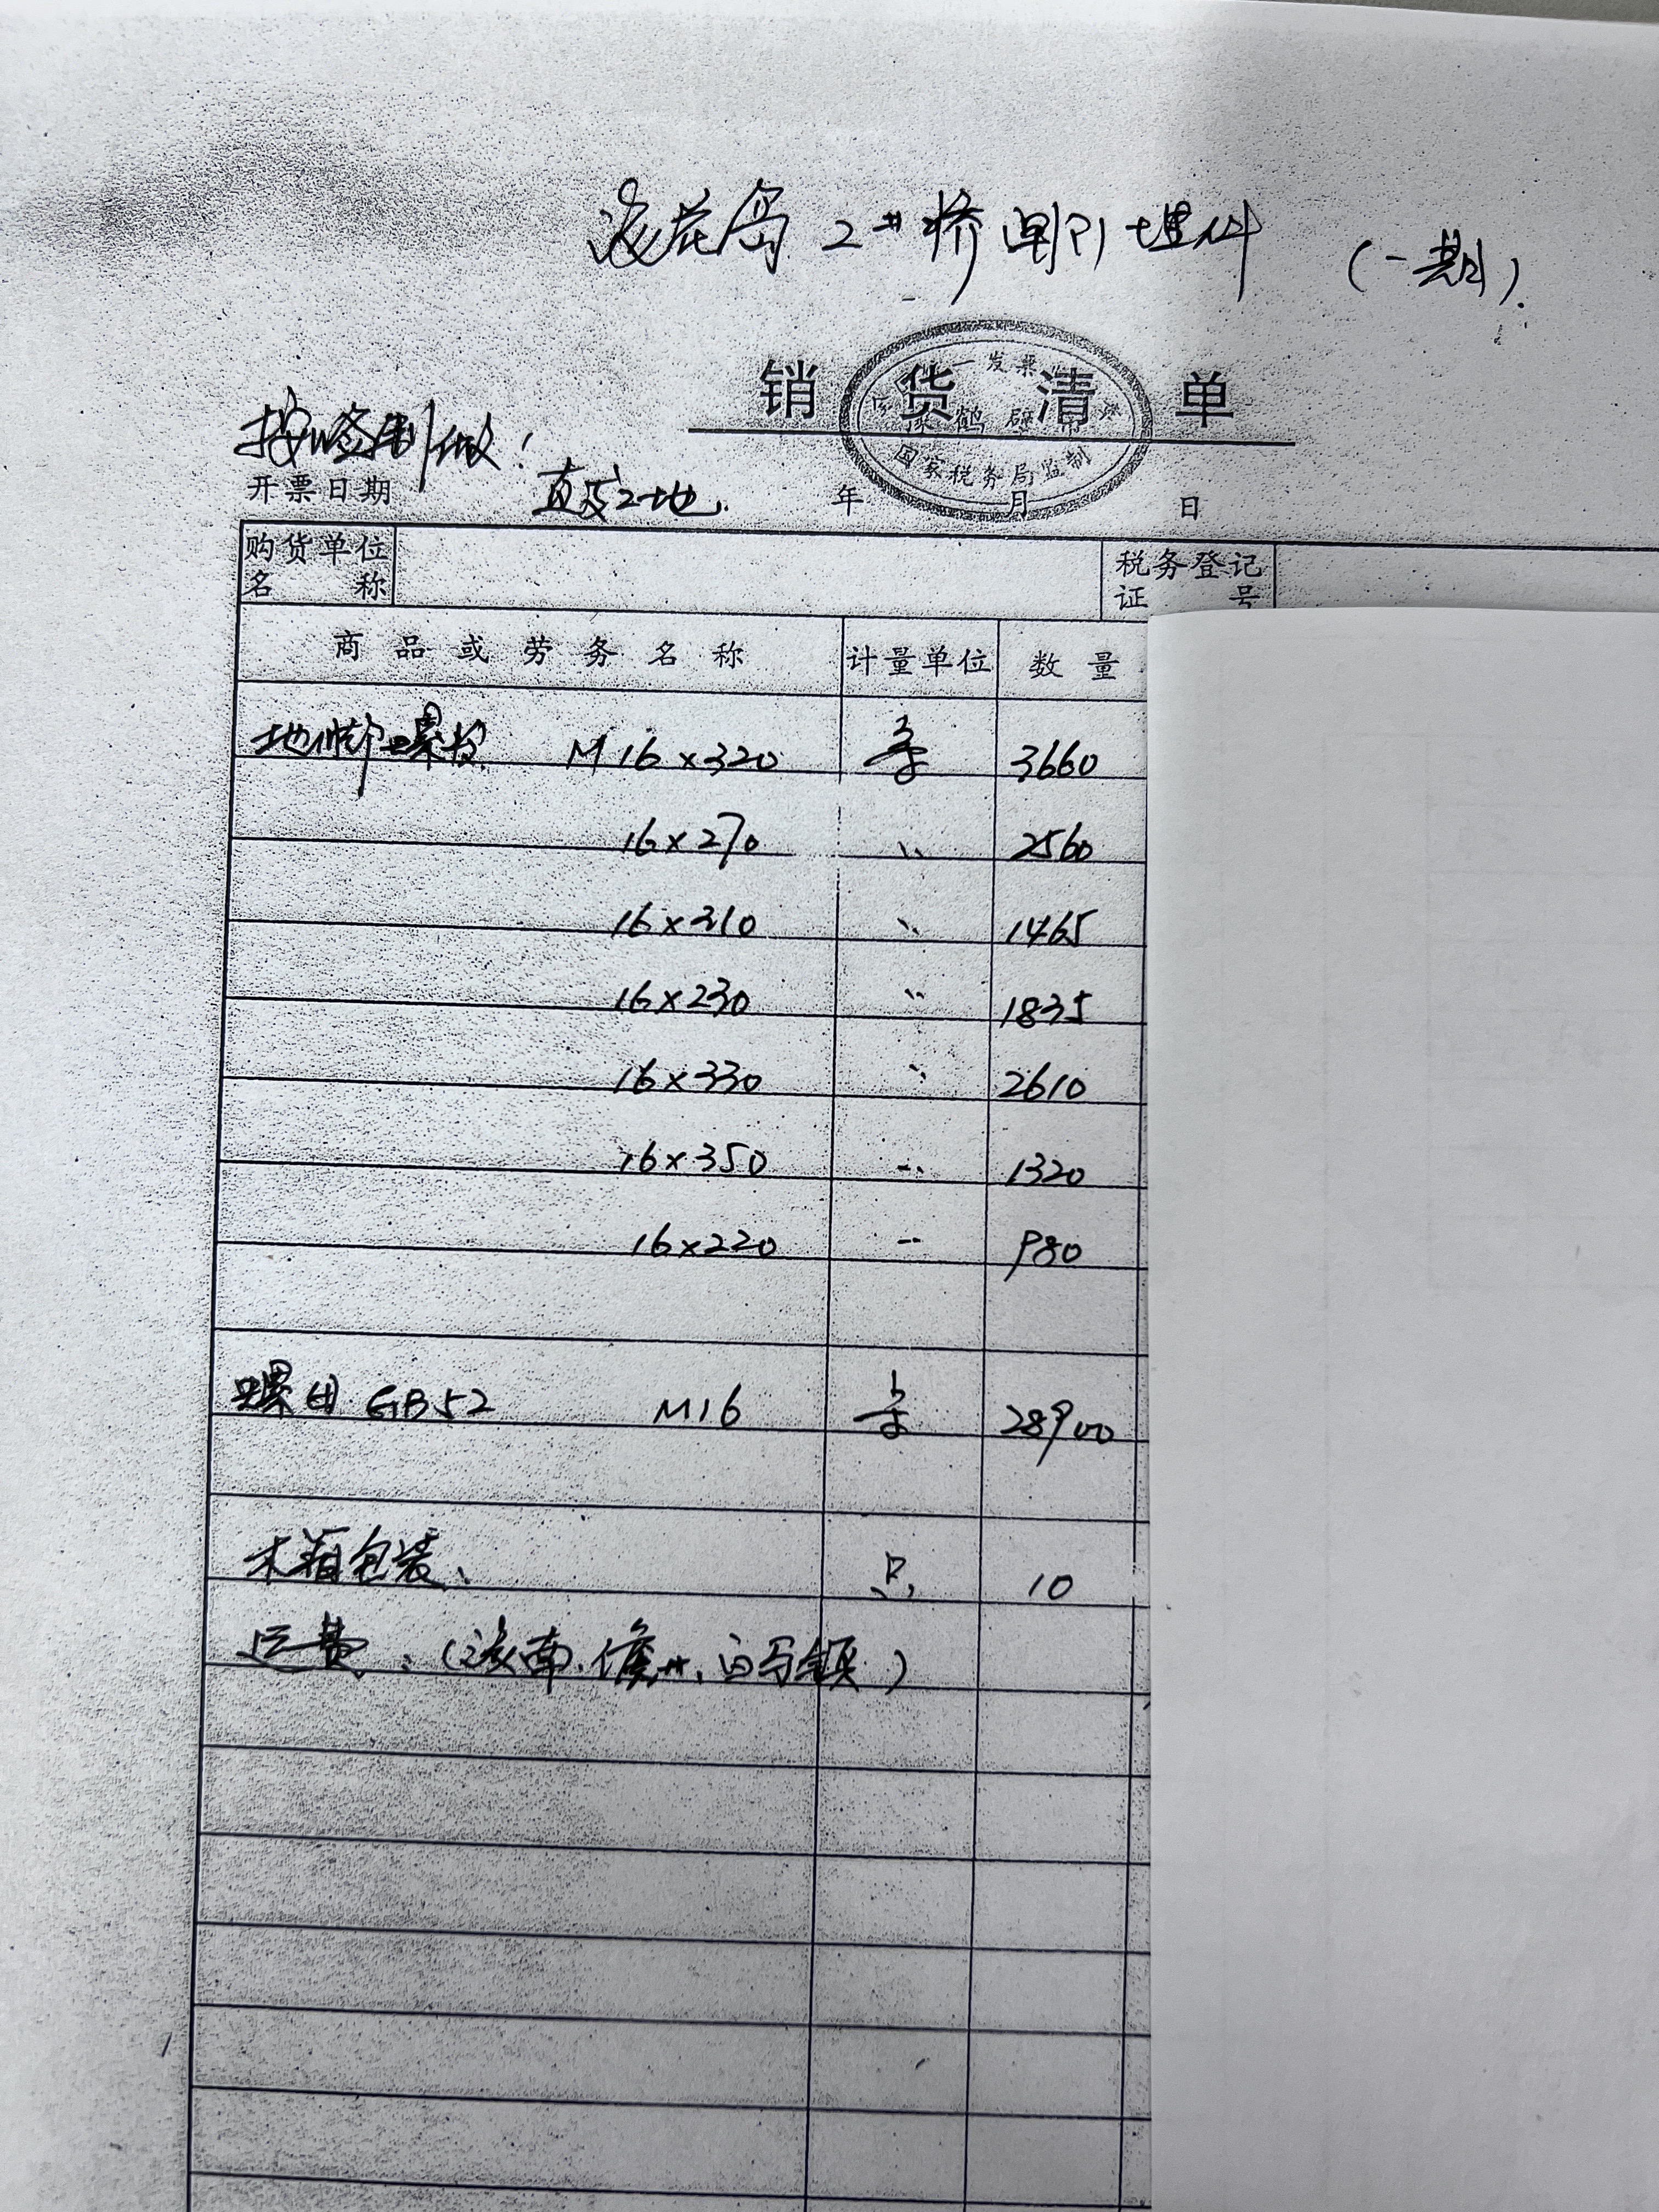 海花岛 2#桥 预埋件 (一期).
销 货 清 单
国家税务局监制
按 制做!
开票日期 直发工地. 年 月 日
购货单位名称 税务登记证号
商品或劳务名称 计量单位 数量
地脚螺栓 M16×320 套 3660
16×270 〃 2560
16×310 〃 1465
16×230 〃 1835
16×330 〃 2610
16×350 〃 1320
16×220 〃 980
螺母 GB52 M16 28900
木箱包装、 只 10
运费:(海南.儋州.白马镇)